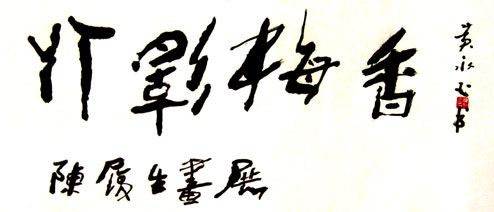 竹影梅香
陳履生畫展
黄永玉书